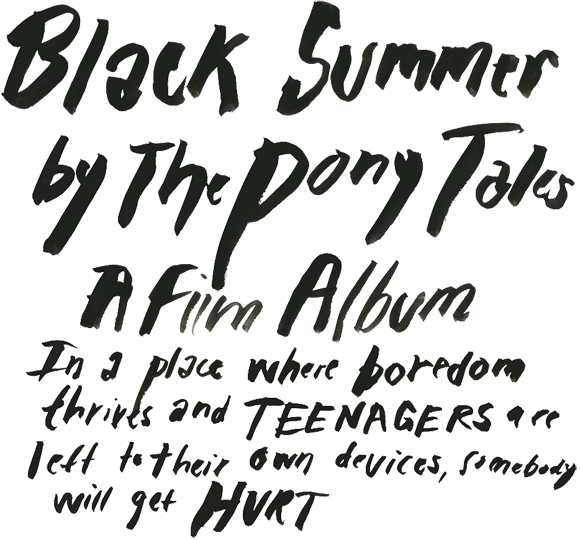 Black Summer
by The Pony Tales
A Film Album
In a place where boredom
thrives and TEENAGERS are
left to their own devices, somebody
will get HURT